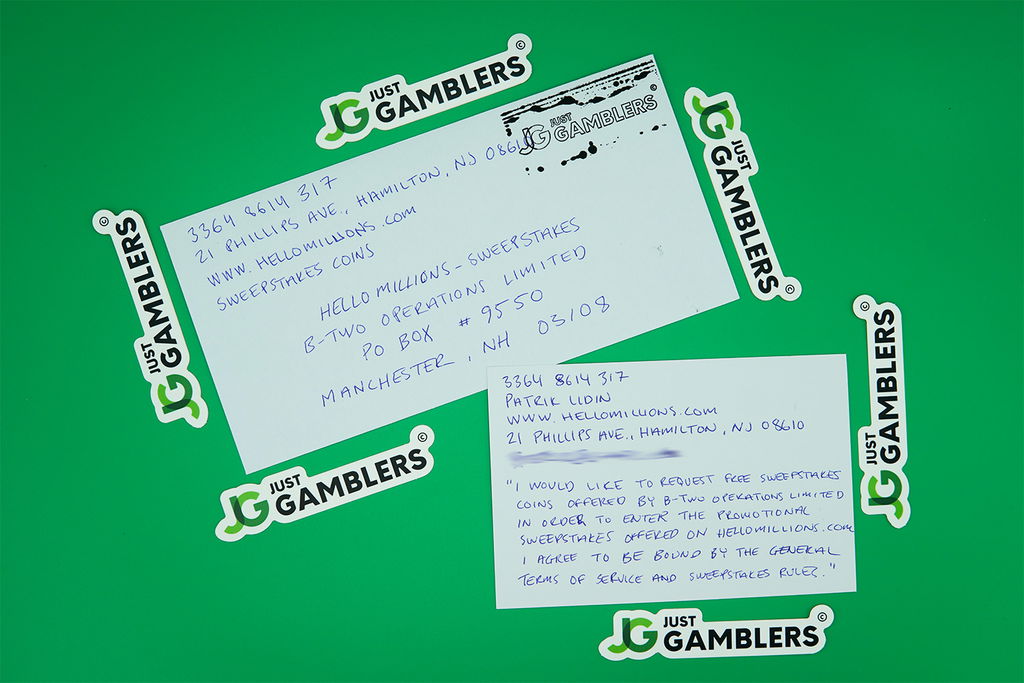 JUST
GAMBLERS
©
JUST
GAMBLERS
©
3364 8614 317
21 PHILLIPS AVE., HAMILTON, NJ 08610
WWW. HELLOMILLIONS.COM
SWEEPSTAKES COINS
HELLO MILLIONS - SWEEPSTAKES
B-TWO OPERATIONS LIMITED
PO BOX # 9550
MANCHESTER, NH 03108
JUST
GAMBLERS
©
JUST
GAMBLERS
©
3364 8614 317
PATRIK LIDIN
WWW. HELLOMILLIONS.COM
21 PHILLIPS AVE., HAMILTON, NJ 08610
"I WOULD LIKE TO REQUEST FREE SWEEPSTAKES
COINS OFFERED BY B-TWO OPERATIONS LIMITED
IN ORDER TO ENTER THE PROMOTIONAL
SWEEPSTAKES OFFERED ON HELLOMILLIONS.COM
I AGREE TO BE BOUND BY THE GENERAL
TERMS OF SERVICE AND SWEEPSTAKES RULES."
JUST
GAMBLERS
©
JUST
GAMBLERS
©
JUST
GAMBLERS
©